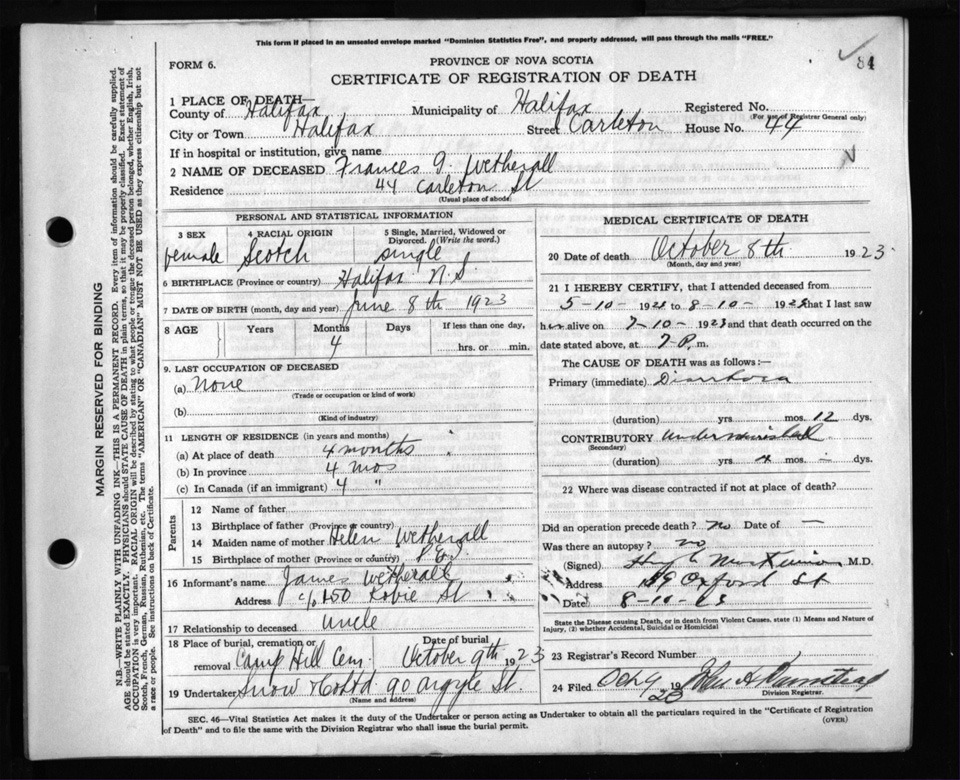 This form if placed in an unsealed envelope marked "Dominion Statistics Free", and properly addressed, will pass through the mails "FREE."
84
FORM 6.
PROVINCE OF NOVA SCOTIA
CERTIFICATE OF REGISTRATION OF DEATH
1 PLACE OF DEATH—
County of Halifax Municipality of Halifax Registered No.
(For use of Registrar General only)
City or Town Halifax Street Carleton House No. 44
If in hospital or institution, give name
2 NAME OF DECEASED Frances G. Wetherall
Residence 44 Carleton St
(Usual place of abode)
PERSONAL AND STATISTICAL INFORMATION
3 SEX 4 RACIAL ORIGIN 5 Single, Married, Widowed or Divorced. (Write the word.)
female Scotch single
6 BIRTHPLACE (Province or country) Halifax N.S.
7 DATE OF BIRTH (month, day and year) June 8th 1923
8 AGE Years Months Days If less than one day,
4 hrs. or min.
9. LAST OCCUPATION OF DECEASED
(a) None
(Trade or occupation or kind of work)
(b)
(Kind of industry)
11 LENGTH OF RESIDENCE (in years and months)
(a) At place of death 4 months
(b) In province 4 mos
(c) In Canada (if an immigrant) 4 "
Parents
12 Name of father
13 Birthplace of father (Province or country)
14 Maiden name of mother Helen Wetherall
15 Birthplace of mother (Province or country) P.E.I.
16 Informant's name James Wetherall
Address c/o 150 Robie St
17 Relationship to deceased Uncle
18 Place of burial, cremation or removal Camp Hill Cem. Date of burial October 9th 1923
19 Undertaker Snow & Co Ltd 90 Argyle St.
(Name and address)
MEDICAL CERTIFICATE OF DEATH
20 Date of death October 8th 1923
(Month, day and year)
21 I HEREBY CERTIFY, that I attended deceased from
5-10-1923 to 8-10-1923 that I last saw
her alive on 7-10-1923 and that death occurred on
date stated above, at 7 P. m.
The CAUSE OF DEATH was as follows:—
Primary (immediate) Diarrhoea
(duration) yrs mos. 12 dys.
CONTRIBUTORY
(Secondary)
(duration) yrs. 4 mos. — dys.
22 Where was disease contracted if not at place of death?
Did an operation precede death? no Date of —
Was there an autopsy? no
(Signed) M.D.
Address Oxford St
Date 8-10-23
State the Disease causing Death, or in death from Violent Causes, state (1) Means and Nature of Injury, (2) whether Accidental, Suicidal or Homicidal
23 Registrar's Record Number
24 Filed Oct 9 1923 John A
Division Registrar.
SEC. 46—Vital Statistics Act makes it the duty of the Undertaker or person acting as Undertaker to obtain all the particulars required in the "Certificate of Registration of Death" and to file the same with the Division Registrar who shall issue the burial permit.
(OVER)
MARGIN RESERVED FOR BINDING
N.B.—WRITE PLAINLY WITH UNFADING INK—THIS IS A PERMANENT RECORD. Every item of information should be carefully supplied.
AGE should be stated EXACTLY. PHYSICIANS should STATE CAUSE OF DEATH in plain terms, so that it may be properly classified. Exact statement of
OCCUPATION is very important. RACIAL ORIGIN will be described by stating to what people or tongue the deceased person belonged, whether English, Irish,
Scotch, French, German, Russian, Ruthenian, etc. The terms "AMERICAN" OR "CANADIAN" MUST NOT BE USED as they express citizenship but not
a race or people. See instructions on back of Certificate.